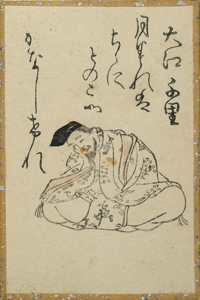 大江千里
月みれは
ちゝに
ものこそ
かなしけれ